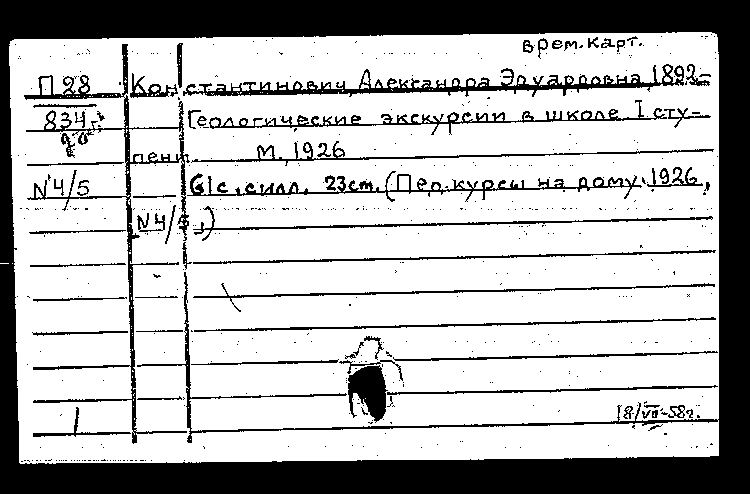 врем.карт.
П 28 Константинович, Александра Эдуардовна, 1892-
834 Геологические экскурсии в школе I сту-
пени. М., 1926
N 4/5 61с. с илл. 23см. (Пед. курсы на дому, 1926,
N 4/5.)
18/VII-58г.